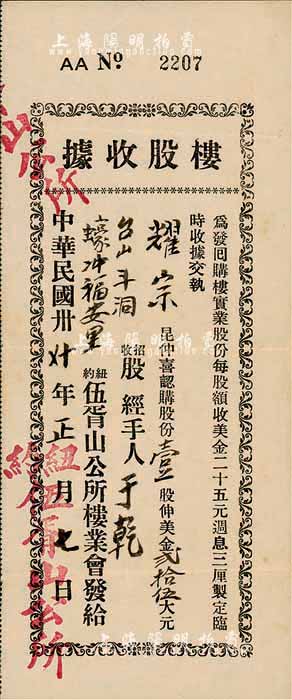 上海陽明拍賣
AA No 2207
樓股收據
爲發回購樓實業股份每股額收美金二十五元週息三厘製定臨
時收據交執
耀宗昆仲喜認購股份壹股伸美金貳拾伍大元
台山斗洞
蠔冲福安里
招收股經手人于乾
紐約伍胥山公所樓業會發給
中華民國卅廿年正月七日
山公所
紐約伍胥山公所
上海陽明拍賣